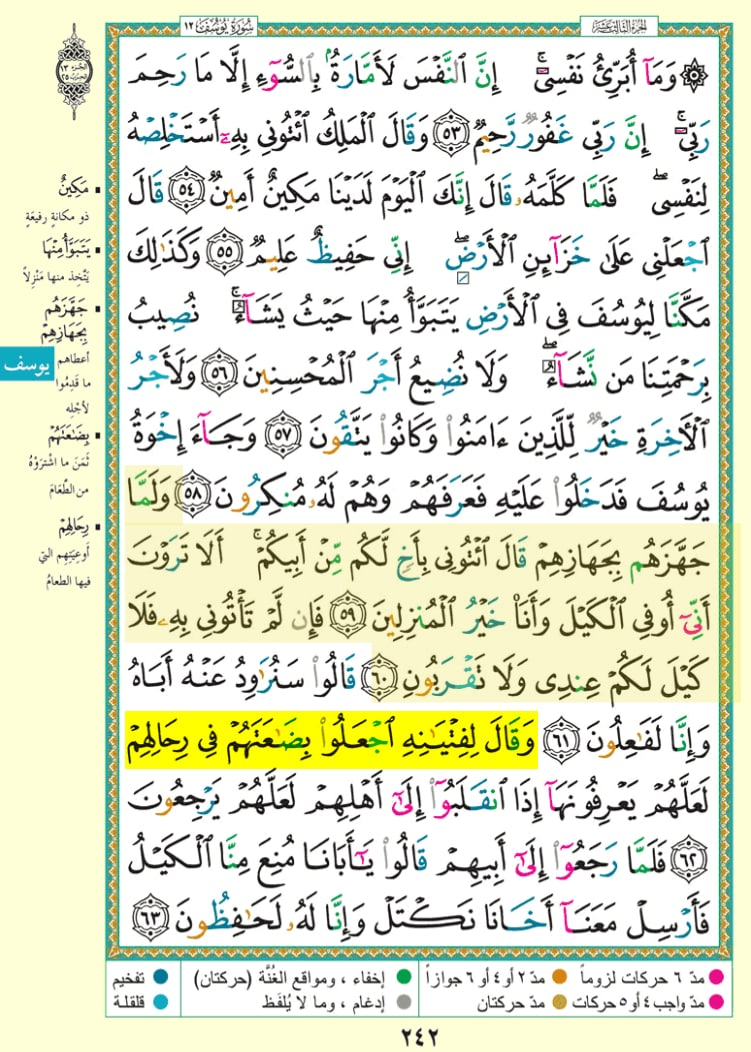 سُورَةُ يُوسُفَ ١٢
الجزء الثالث عشر
الجزء ١٣
الحزب ٢٥
۞ وَمَآ أُبَرِّئُ نَفْسِىٓۚ إِنَّ ٱلنَّفْسَ لَأَمَّارَةُۢ بِٱلسُّوٓءِ إِلَّا مَا رَحِمَ
رَبِّىٓۚ إِنَّ رَبِّى غَفُورٌ رَّحِيمٌ ٥٣ وَقَالَ ٱلْمَلِكُ ٱئْتُونِى بِهِۦٓ أَسْتَخْلِصْهُ
لِنَفْسِىۖ فَلَمَّا كَلَّمَهُۥ قَالَ إِنَّكَ ٱلْيَوْمَ لَدَيْنَا مَكِينٌ أَمِينٌ ٥٤ قَالَ
ٱجْعَلْنِى عَلَىٰ خَزَآئِنِ ٱلْأَرْضِۖ إِنِّى حَفِيظٌ عَلِيمٌ ٥٥ وَكَذَٰلِكَ
مَكَّنَّا لِيُوسُفَ فِى ٱلْأَرْضِ يَتَبَوَّأُ مِنْهَا حَيْثُ يَشَآءُۚ نُصِيبُ
بِرَحْمَتِنَا مَن نَّشَآءُۖ وَلَا نُضِيعُ أَجْرَ ٱلْمُحْسِنِينَ ٥٦ وَلَأَجْرُ
ٱلْـَٔاخِرَةِ خَيْرٌ لِّلَّذِينَ ءَامَنُوا۟ وَكَانُوا۟ يَتَّقُونَ ٥٧ وَجَآءَ إِخْوَةُ
يُوسُفَ فَدَخَلُوا۟ عَلَيْهِ فَعَرَفَهُمْ وَهُمْ لَهُۥ مُنكِرُونَ ٥٨ وَلَمَّا
جَهَّزَهُم بِجَهَازِهِمْ قَالَ ٱئْتُونِى بِأَخٍ لَّكُم مِّنْ أَبِيكُمْۚ أَلَا تَرَوْنَ
أَنِّىٓ أُوفِى ٱلْكَيْلَ وَأَنَا۠ خَيْرُ ٱلْمُنزِلِينَ ٥٩ فَإِن لَّمْ تَأْتُونِى بِهِۦ فَلَا
كَيْلَ لَكُمْ عِندِى وَلَا تَقْرَبُونِ ٦٠ قَالُوا۟ سَنُرَٰوِدُ عَنْهُ أَبَاهُ
وَإِنَّا لَفَـٰعِلُونَ ٦١ وَقَالَ لِفِتْيَـٰنِهِ ٱجْعَلُوا۟ بِضَـٰعَتَهُمْ فِى رِحَالِهِمْ
لَعَلَّهُمْ يَعْرِفُونَهَآ إِذَا ٱنقَلَبُوٓا۟ إِلَىٰٓ أَهْلِهِمْ لَعَلَّهُمْ يَرْجِعُونَ
٦٢ فَلَمَّا رَجَعُوٓا۟ إِلَىٰٓ أَبِيهِمْ قَالُوا۟ يَـٰٓأَبَانَا مُنِعَ مِنَّا ٱلْكَيْلُ
فَأَرْسِلْ مَعَنَآ أَخَانَا نَكْتَلْ وَإِنَّا لَهُۥ لَحَـٰفِظُونَ ٦٣
▪ مَكِينٌ
ذو مكانةٍ رفيعَةٍ
▪ يَتَبَوَّأُ مِنْهَا
يَتَّخِذ منها مَنْزِلاً
▪ جَهَّزَهُم
بِجَهَازِهِمْ
أعطاهم
ما قَدِمُوا
لأجْلِهِ
▪ بِضَـٰعَتَهُمْ
ثَمَنَ ما اشْتَرَوْهُ
من الطَّعَامَ
▪ رِحَالِهِمْ
أوعِيَتِهِم التي
فيها الطعامُ
يوسف
مدّ ٦ حركات لزوماً
مدّ ٢ أو ٤ أو ٦ جوازاً
إخفاء ، ومواقع الغُنَّة (حركتان)
تفخيم
مدّ واجب ٤ أو ٥ حركات
مدّ حركتان
إدغام ، وما لا يُلفَظ
قلقلة
٢٤٢